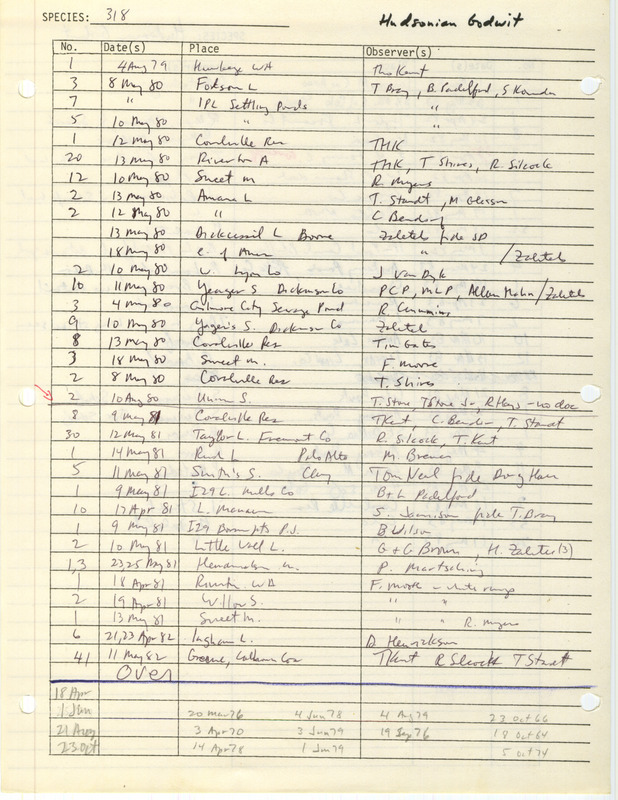 SPECIES: 318 Hudsonian Godwit
No. Date(s) Place Observer(s)
1 4 Aug 79 WA Tho Kent
3 8 May 80 L T Bray, B. Padelford, S
7 " IPL Settling Ponds "
5 10 May 80 " "
1 12 May 80 Coralville Res THK
20 13 May 80 Riverton A THK, T Shires, R. Silcock
12 10 May 80 Sweet m R. Myers
2 13 May 80 Amana L T. Staudt, M
2 12 May 80 " C Bendorf
13 May 80 L Boone Zaletel fide JP
18 May 80 E. of Ames " / Zaletel
2 10 May 80 Lyon Co J Van Dyk
10 11 May 80 S Dickinson Co PCP, MLP, Allan / Zaletel
3 4 May 80 Gilmore City Sewage Pond R Cummins
9 10 May 80 S. Dickinson Co Zaletel
8 13 May 80 Coralville Res Tim
3 18 May 80 Sweet m. F. Moore
2 8 May 80 Coralville Res T. Shires
2 10 Aug 80 Union S. T. Stone T Stone Jr, R - no doc
8 9 May 81 Coralville Res T Kent, C. Bendorf, T. Staudt
30 12 May 81 L. Fremont Co R. Silcock, T. Kent
1 14 May 81 Rush L Palo Alto M. Brewer
5 11 May 81 Smith's S. Clay Tom Neal fide Doug Harr
1 9 May 81 I29 L. Mills Co B + L Padelford
10 17 Apr 81 L. Manawa S. fide T. Bray
1 9 May 81 I29 P.J. B Wilson
2 10 May 81 Little Wall L. G + G Brown, H. Zaletel (3)
1,3 23,25 May 81 m. P. Martsching
1 18 Apr 81 WA F. Moore
2 19 Apr 81 Willow S. " "
1 13 May 81 Sweet m. " R. Myers
6 21,23 Apr 82 Ingham L. D Henrickson
41 11 May 82 Greene, Calhoun Cos T Kent R Silcock T Staudt
Over
18 Apr
1 Jun 20 Mar 76 4 Jun 78 4 Aug 79 23 Oct 66
21 Aug 3 Apr 70 3 Jun 79 19 Sep 76 18 Oct 64
23 Oct 14 Apr 78 1 Jun 79 5 Oct 74